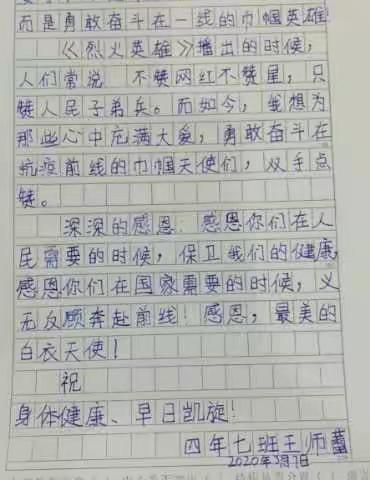 而是勇敢奋斗在一线的巾帼英雄
《烈火英雄》播出的时候,
人们常说 不赞网红不赞星,只
赞人民子弟兵。而如今,我想为
那些心中充满大爱,勇敢奋斗在
抗疫前线的巾帼天使们,双手点
赞。
深深的感恩:感恩你们在人
民需要的时候,保卫我们的健康,
感恩你们在国家需要的时候,义
无反顾奔赴前线!感恩,最美的
白衣天使!
祝
身体健康、早日凯旋!
四年七班王师
2020年3月7日